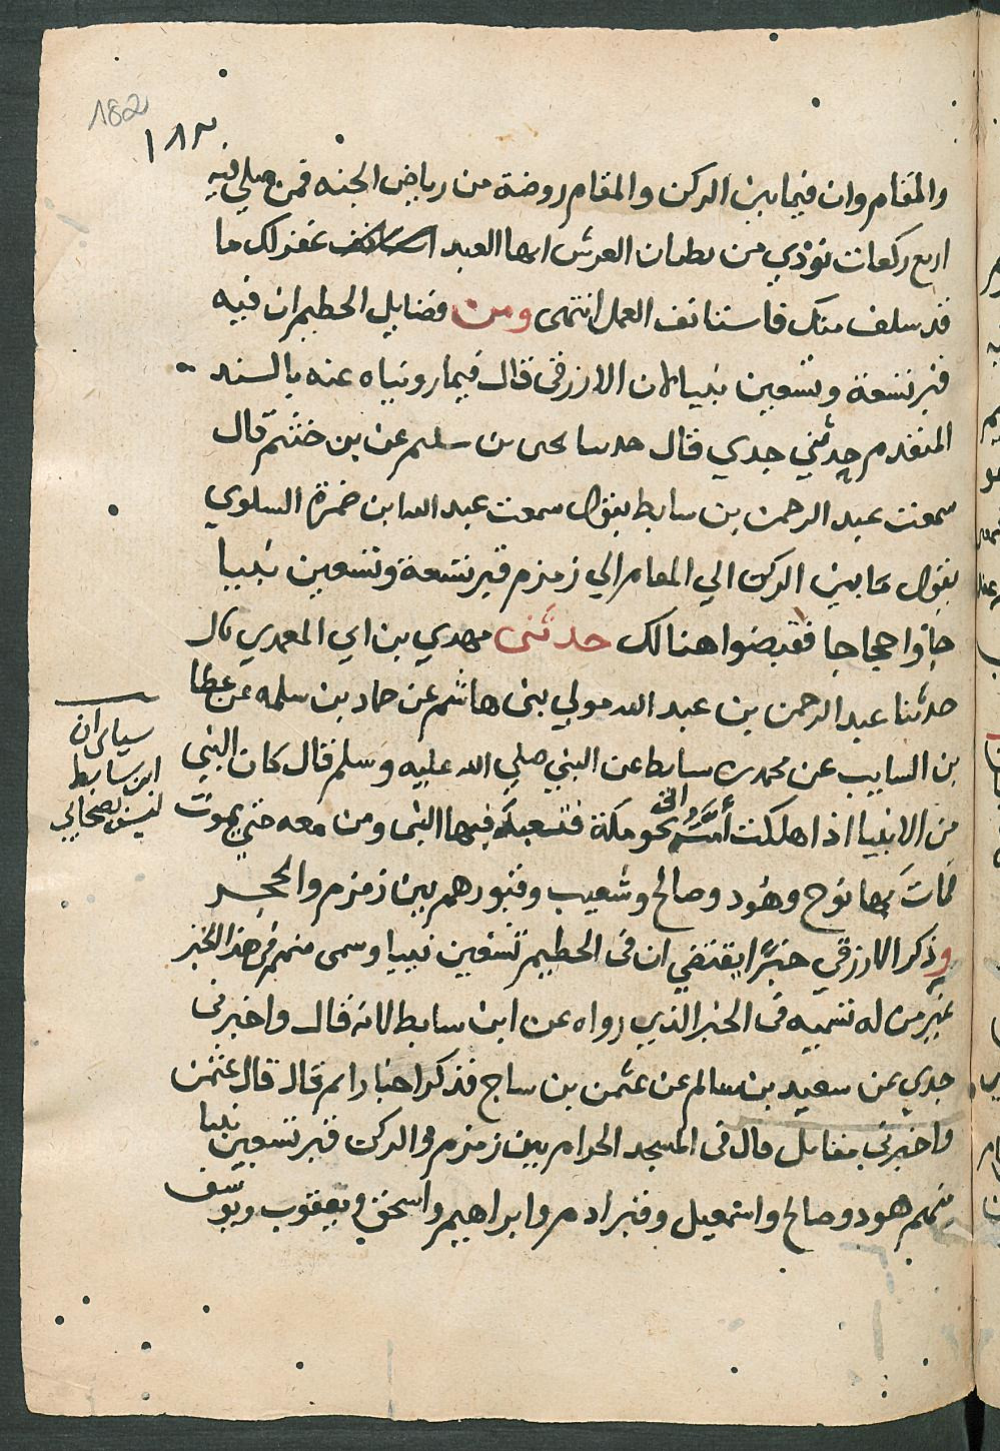 182
١٨٢
والمقام وان فيما بين الركن والمقام روضة من رياض الجنه فمن صلي فيه
اربع ركعات نودي من بطنان العرش ايها العبد غفر لك ما
قد سلف منك فاستانف العمل انتهى ومن فضايل الحطيم ان فيه
قبر تسعة وتسعين نبيا لان الازرقي قال فيما رويناه عنه بالسند
المتقدم حدثني جدي قال حدسا يحيى بن سليم عن بن خثيم قال
سمعت عبد الرحمن بن سابط يقول سمعت عبد الله ابن ضمرة السلوي
يقول ما بين الركن الي المقام الي زمزم قبر تسعة وتسعين نبيا
جاوا حجاجا فقبضوا هنالك حدثني مهدي بن ابي المهدي قال
حدثنا عبد الرحمن بن عبد الله مولي بني هاشم عن حماد بن سلمه عن عطا
بن السايب عن محمد بن سابط عن النبي صلي الله عليه وسلم قال كان النبي
من الانبيا اذا هلكت أمته نحو مكة فتعبد فيها النبي ومن معه حتي يموت
فمات بها نوح وهود وصالح وشعيب وقبورهم بين زمزم والحجر
وذكر الازرقي خبرًا يقتضي ان في الحطيم تسعين نبيا وسمى منهم في هذا الخبر
غير من له تسميه في الخبر الذي رواه عن ابن سابط لانه قال واخبرني
جدي عن سعيد بن سالم عن عثمن بن ساج فذكر اخبارا ثم قال قال عثمن
واخبرني مقاتل قال في المسجد الحرام بين زمزم والركن قبر تسعين نبيا
منهم هود وصالح واسمعيل وقبر ادم وابراهيم واسحق ويعقوب ويوسف
سياتي ان
ابن سابط
ليس بصحابي